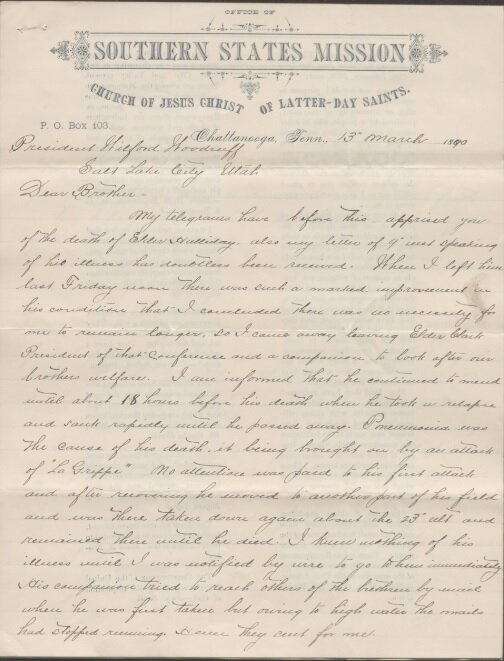 OFFICE OF
SOUTHERN STATES MISSION
CHURCH OF JESUS CHRIST OF LATTER-DAY SAINTS.
P. O. Box 103. Chattanooga, Tenn., 13" March 1890
President Wilford Woodruff
Salt Lake City Utah
Dear Brother-
My telegrams have before this apprised you
of the death of Elder Halliday, also my letter of 9" inst speaking
of his illness has doubtless been received. When I left him
last Friday noon there was such a marked improvement in
his condition that I concluded there was no necessity for
me to remain longer, so I came away leaving Elder Clark
President of that Conference and a companion to look after our
brothers welfare. I am informed that he continued to mend
until about 18 hours before his death when he took a relapse
and sank rapidly until he passed away. Pneumonia was
the cause of his death, it being brought on by an attack
of "La Grippe" No attention was paid to his first attack
and after recovering he moved to another part of his field
and was there taken down again about the 23" ult and
remained there until he died. I knew nothing of his
illness until I was notified by wire to go to him immediately
His companion tried to reach others of the brethren by mail
when he was first taken but owing to high water the mails
had stopped running. Hence they sent for me.